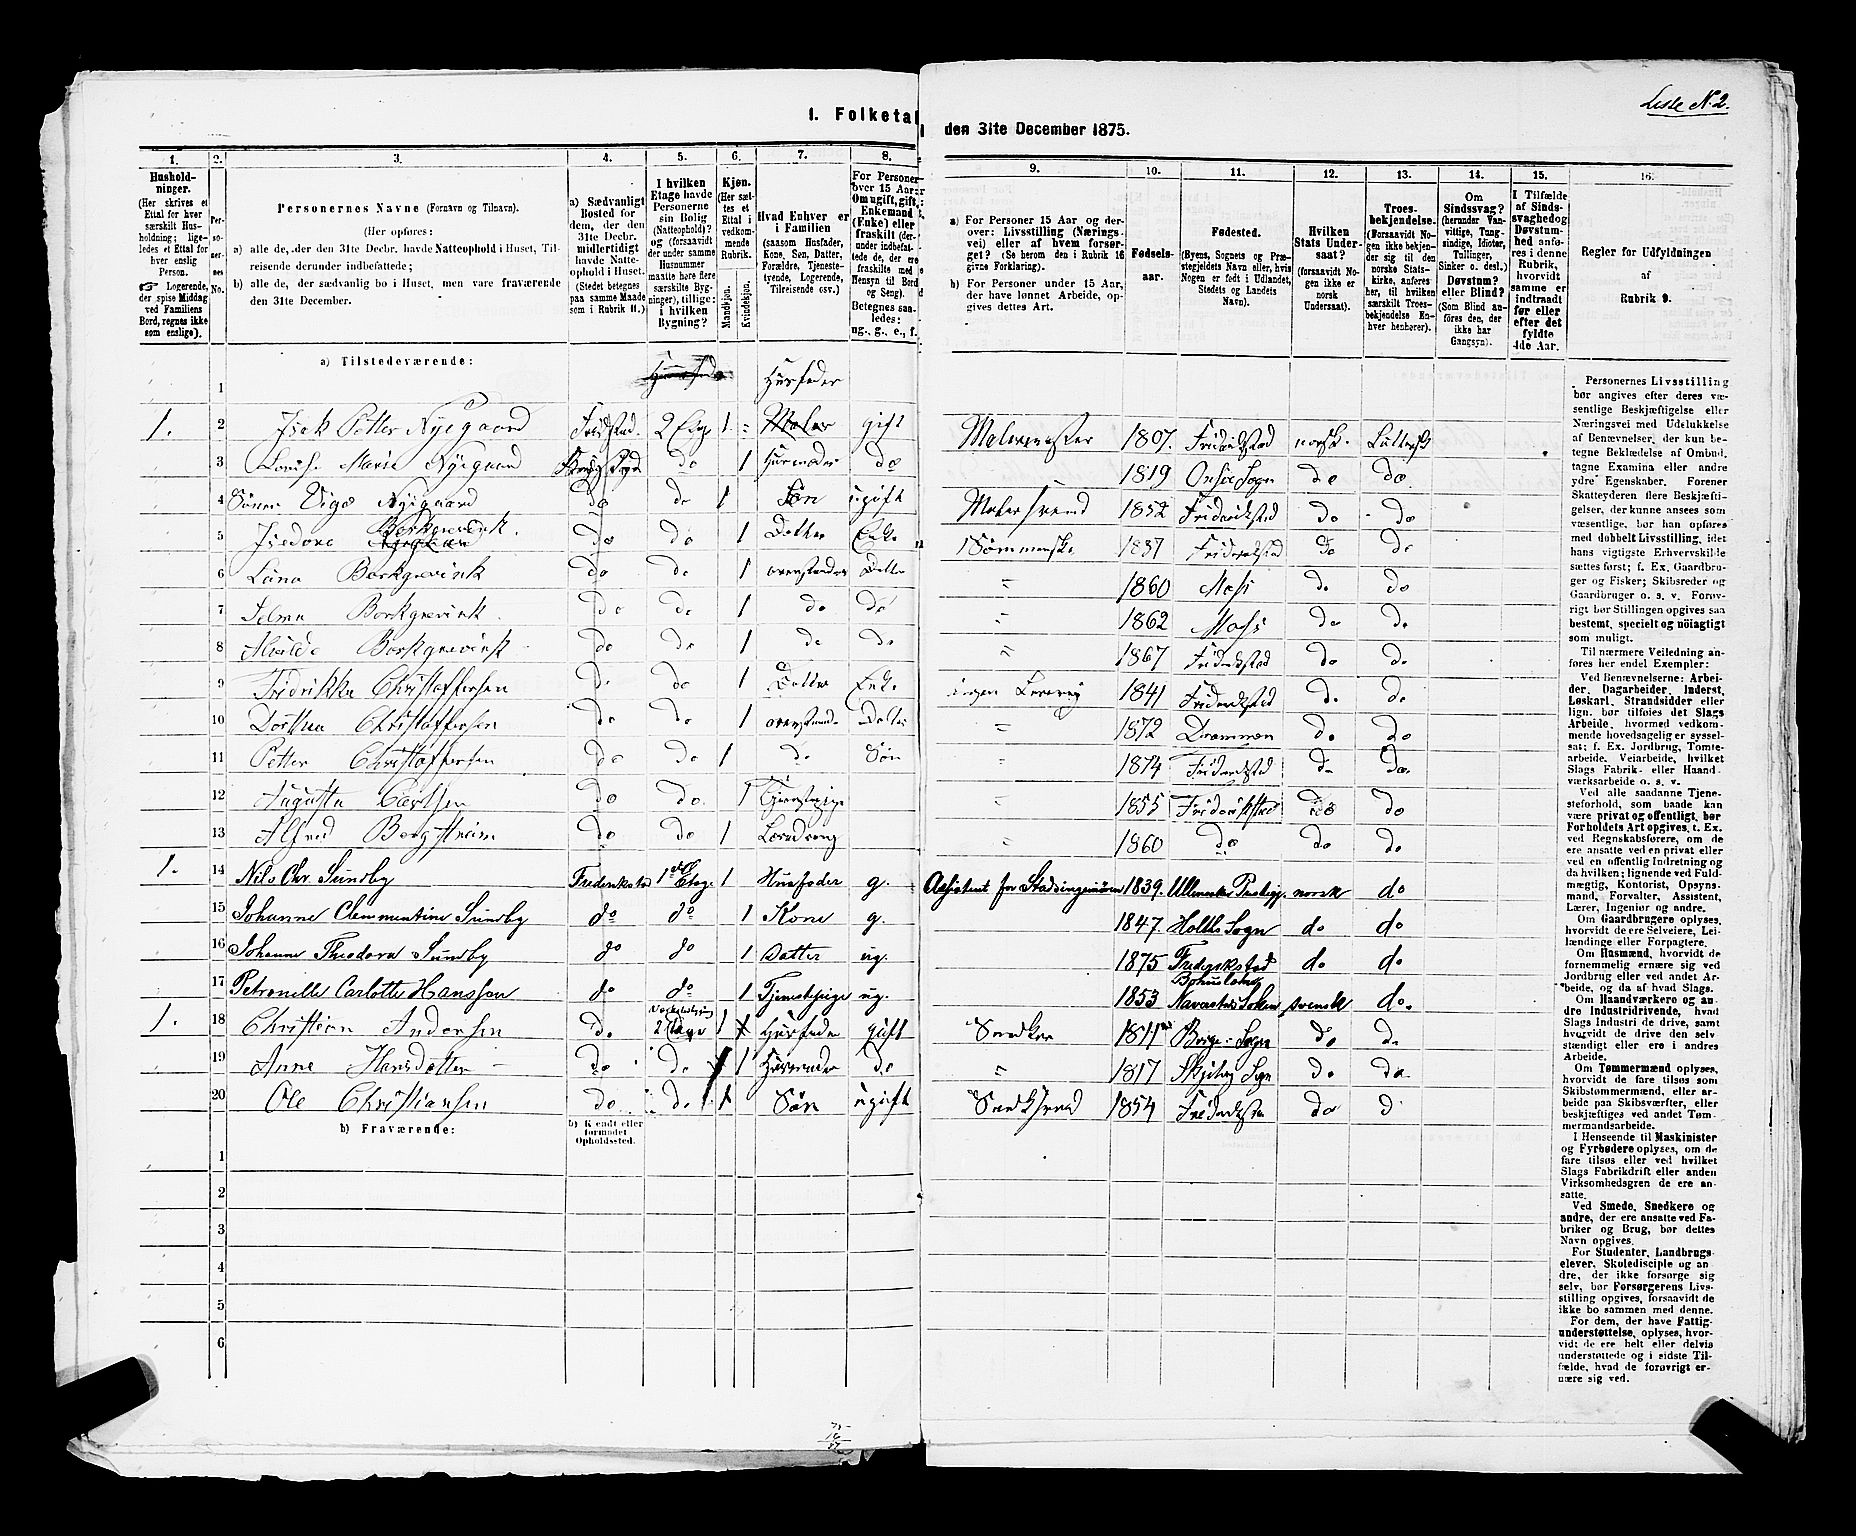 Liste N. 2.
1. Folketal
den 31te December 1875.
1. 2. 3. 4. 5. 6. 7. 8. 9. 10. 11. 12. 13. 14. 15. 16.
Hushold-
ninger.
(Her skrives et
Ettal for hver
særskilt Hus-
holdning; lige-
ledes et Ettal for
hver enslig
Person.
☞ Logerende,
der spise Middag
ved Familiens
Bord, regnes ikke
som enslige).
Per-
so-
ner-
nes
No.
Personernes Navne (Fornavn og Tilnavn).
(Her opføres:
a) alle de, der den 31te Decbr. havde Natteophold i Huset, Til-
reisende derunder indbefattede;
b) alle de, der sædvanlig bo i Huset, men vare fraværende
den 31te December.
a) Sædvanligt
Bosted for
dem, der den
31te Decbr.
midlertidigt
havde Natte-
ophold i Huset.
(Stedet betegnes
paa samme Maade
som i Rubrik 11.)
I hvilken
Etage havde
Personerne
sin Bolig
(Natteophold)?
og (forsaavidt
der under samme
Husnummer
maatte høre flere
særskilte Byg-
ninger), tillige:
i hvilken
Bygning?
Kjøn.
(Her sæt-
tes et
Ettal i
vedkom-
mende
Rubrik.
Mandkjøn.
Kvindekjøn.
Hvad Enhver er
i Familien
(saasom Husfader,
Kone, Søn, Datter,
Forældre, Tjeneste-
tyende, Logerende,
Tilreisende osv.)
For Personer
over 15 Aar:
Om ugift, gift,
Enkemand
(Enke) eller
fraskilt (der-
under indbefat-
tede de, der ere
fraskilte med
Hensyn til Bord
og Seng).
Betegnes saa-
ledes:
ug., g., e., f.
a) For Personer 15 Aar og der-
over: Livsstilling (Nærings-
vei) eller af hvem forsør-
get? (Se herom den i Rubrik 16
givne Forklaring).
b) For Personer under 15 Aar,
der have lønnet Arbeide, op-
gives dettes Art.
Fødsels-
aar.
Fødested.
(Byens, Sognets og Præ-
stegjeldets Navn eller, hvis
Nogen er født i Udlandet,
Stedets og Landets
Navn).
Hvilken
Stats Under-
saat?
(forsaavidt No-
gen ikke er
norsk
Undersaat).
Troes-
bekjendelse.
(Forsaavidt No-
gen ikke bekjen-
der sig til den
norske Stats-
kirke, anføres
her, til hvilken
særskilt Troes-
bekjendelse En-
hver henhører).
Om
Sindssvag?
(herunder Van-
vittige, Tung-
sindige, Idioter,
Tullinger,
Sinker o. desl.)
Døvstum?
eller Blind?
(Som Blind an-
føres den, der
ikke har
Gangsyn).
I Tilfælde
af Sinds-
svaghed og
Døvstum-
hed anfø-
res i denne
Rubrik,
hvorvidt
samme er
indtraadt
før eller
efter det
fyldte
4de Aar.
Regler for Udfyldningen
af
Rubrik 9.
a) Tilstedeværende:
1 Husfader
1. 2 Isak Petter Nyegaard Fridstad. 2 Etage 1 Maler gift Malermester 1807. Fridrikstad norsk. Luttersk
3 Lovise Marie Nyegaard do 1 Husmoder do 1819 Onsø Sogn do do
4 Sønnen Vigo Nyegaard do do 1 Søn ugift Malersvend 1852 Fridrikstad do do
5 Isedora Borkgrevink do do 1 Datter Enke Sømmerske 1837 Fridrikstad do do
6 Lina Borkgrevink do do 1 ovenstaaende Datter " 1860 Moss do do
7 Selma Borkgrevink. do do 1 do do " 1862 Moss do do
8 Alvilde Borkgrevink do do 1 do do " 1867 Fridrikstad do do
9 Fridrikka Christoffersen do do 1 Datter Enke ingen 1841 Fridrikstad do do
10 Dorthea Christoffersen do do 1 ovenstaaende Datter " 1872 Drammen do do
11 Petter Christoffersen do do 1 do Søn " 1874 Fridrikstad do do
12 Augusta Carlsen do do 1 Tjenestepige " 1855 Fridrikstad do do
13 Alfred Bergstrøm do do 1 Læredreng " 1860 do do do
1. 14 Nils Chr. Sundby Frederikstad 1ste Etage 1 Husfader g. Assistent for Stadsingeniøren 1839. Ullensaker Præstegj. norsk do
15 Johanne Clemmentine Sundby do do 1 Kone g. 1847. Holtls Sogn do do
16 Johanne Theodora Sundby do do 1 Datter ug. 1875 Frederikstad do do
17 Petronelle Carlotte Hanssen do do 1 Tjenestepige ug. 1853 Bohuslehn Naverstads Sokn svensk do.
1. 18 Christian Andersen do. 2 Etage 1 Husfader gift Snedker 1811 Borge Sogn do do
19 Anne Hansdotter do do 1 Husmoder do " 1817 Skjeberg Sogn do do
20 Ole Christiansen do do 1 Søn ugift Snedkersvend 1854 Fridrikstad do do
b) Fraværende:
b) Kjendt eller
formodet
Opholdssted.
1
2
3
4
5
6
Personernes Livsstilling
bør angives efter deres væ-
sentlige Beskjæftigelse eller
Næringsvei med Udelukkelse
af Benævnelser, der kun be-
tegne Beklædelse af Ombud,
tagne Examina eller andre
ydre Egenskaber. Forener
Skatteyderen flere Beskjæfti-
gelser, der kunne ansees som
væsentlige, bør han opføres
med dobbelt Livsstilling, idet
hans vigtigste Erhvervskilde
sættes først; f. Ex. Gaardbru-
ger og Fisker; Skibsreder og
Gaardbruger o. s. v. Forøv-
rigt bør Stillingen opgives saa
bestemt, specielt og nöiagtigt
som muligt.
Til nærmere Veiledning an-
føres her endel Exempler:
Ved Benævnelserne: Arbei-
der, Dagarbeider, Inderst,
Løskarl, Strandsidder eller
lign. bør tilføies det Slags
Arbeide, hvormed vedkom-
mende hovedsagelig er syssel-
sat; f. Ex. Jordbrug, Tomte-
arbeide, Veiarbeide, hvilket
Slags Fabrik- eller Haand-
værksarbeide o. s. v.
Ved alle saadanne Tjene-
steforhold, som baade kan
være privat og offentligt, bør
Forholdets Art opgives, t. Ex.
ved Regnskabsførere, om de
ere ansatte ved en privat eller
ved en offentlig Indretning og
da hvilken; lignende ved Fuld-
mægtig, Kontorist, Opsyns-
mand, Forvalter, Assistent,
Lærer, Ingeniør og andre.
Om Gaardbrugere oplyses,
hvorvidt de ere Selveiere, Lei-
lændinge eller Forpagtere.
Om Husmænd, hvorvidt de
fornemmelig ernære sig ved
Jordbrug eller ved andet Ar-
beide, og da af hvad Slags.
Om Haandværkere og an-
dre Industridrivende, hvad
Slags Industri de drive, samt
hvorvidt de drive den selv-
stændigt eller ere i andres
Arbeide.
Om Tømmermænd oplyses,
hvorvidt de fare tilsøs som
Skibstømmermænd, eller ar-
beide paa Skibsværfter, eller
beskjæftiges ved andet Tøm-
mermandsarbeide.
I Henseende til Maskinister
og Fyrbødere oplyses, om de
fare tilsøs eller ved hvilket
Slags Fabrikdrift eller anden
Virksomhedsgren de ere an-
satte.
Ved Smede, Snedkere og
andre, der ere ansatte ved Fa-
briker og Brug, bør dettes
Navn opgives.
For Studenter, Landbrugs-
elever, Skoledisciple og an-
dre, der ikke forsørge sig
selv, bør Forsørgerens Livs-
stilling opgives, forsaavidt de
ikke bo sammen med denne.
For dem, der have Fattig-
understøttelse, oplyses, hvor-
vidt de ere helt eller delvis
understøttede og i sidste Til-
fælde, hvad de forøvrigt er-
nære sig ved.